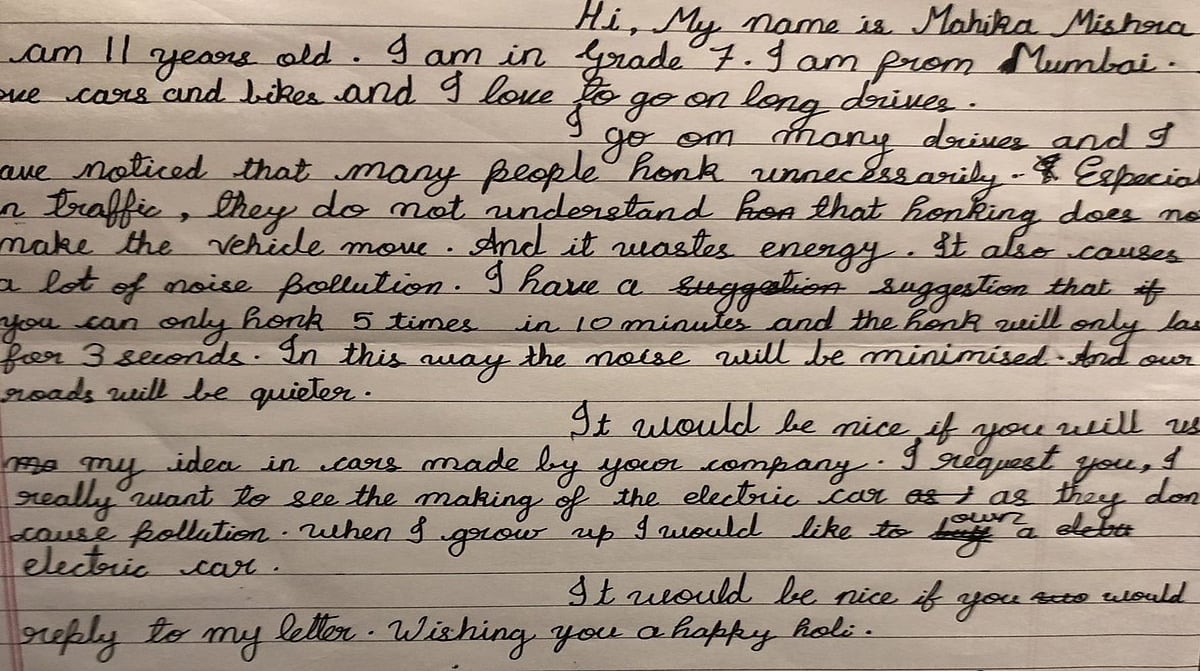 Hi, My name is Mahika Mishra
am 11 years old. I am in Grade 7. I am from Mumbai.
ove cars and bikes and I love to go on long drives.
I go om many drives and I
ave noticed that many people honk unnecessarily. Especial
n traffic, they do not understand hon that honking does no
make the vehicle move. And it wastes energy. It also causes
a lot of noise pollution. I have a suggestion suggestion that if
you can only honk 5 times in 10 minutes and the honk will only la
for 3 seconds. In this way the noise will be minimised. And our
roads will be quieter.
It would be nice if you will us
my idea in cars made by your company. I request you, I
really want to see the making of the electric car as I as they don
cause pollution. When I grow up I would like to buy own a
electric car.
It would be nice if you would
reply to my letter. Wishing you a happy holi.